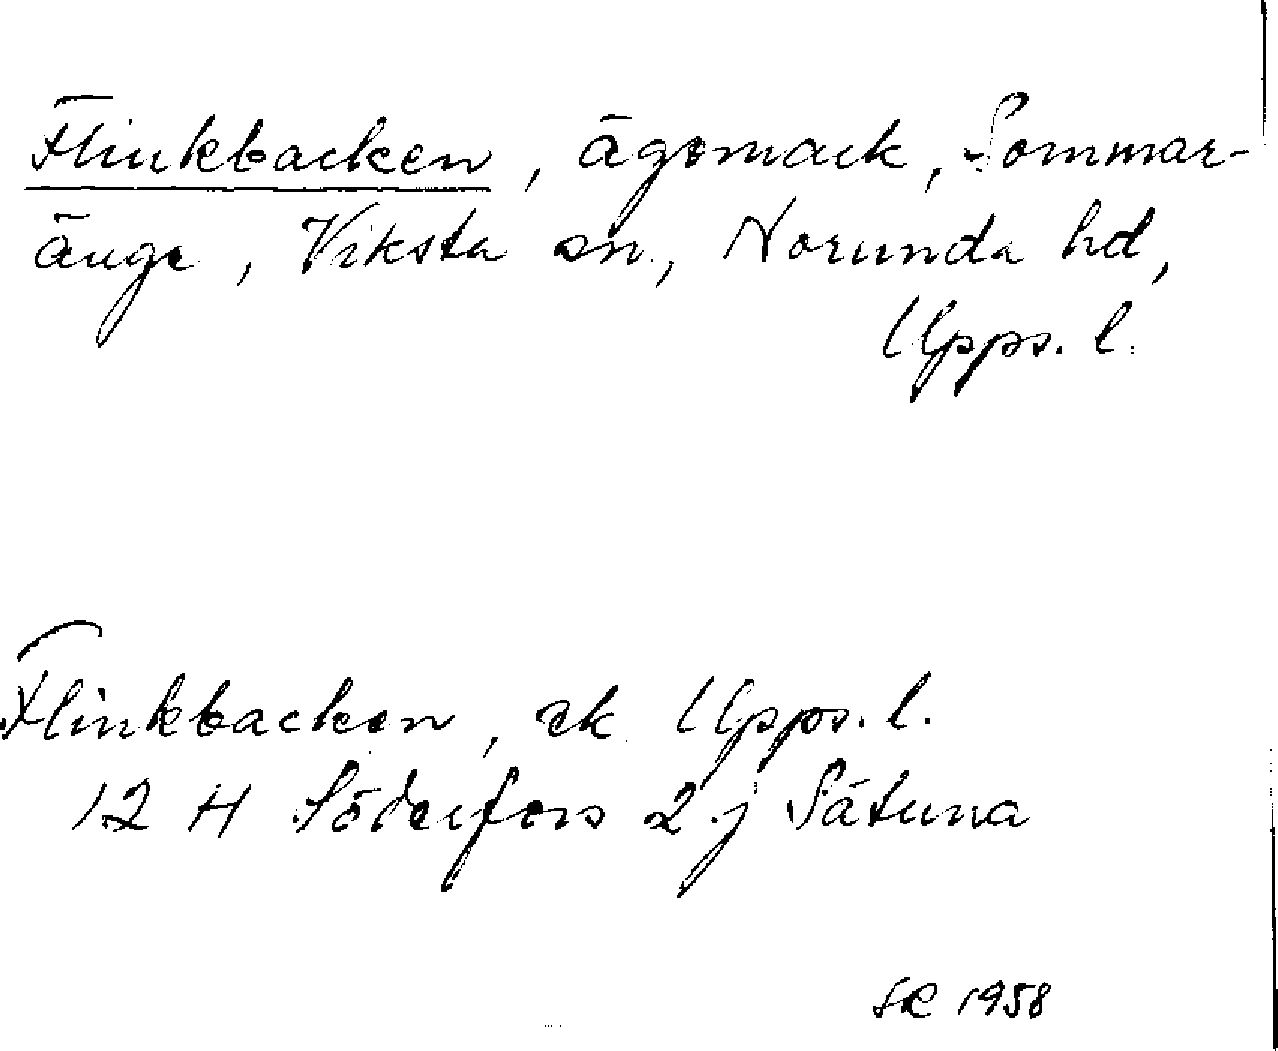 Flinkbacken, ägomark, Sommar-
änge, Viksta sn., Norunda hd,
Upps. l.
Flinkbacken, ek Upps. l.
12 H Söderfors 2 j Sätuna
SR 1958